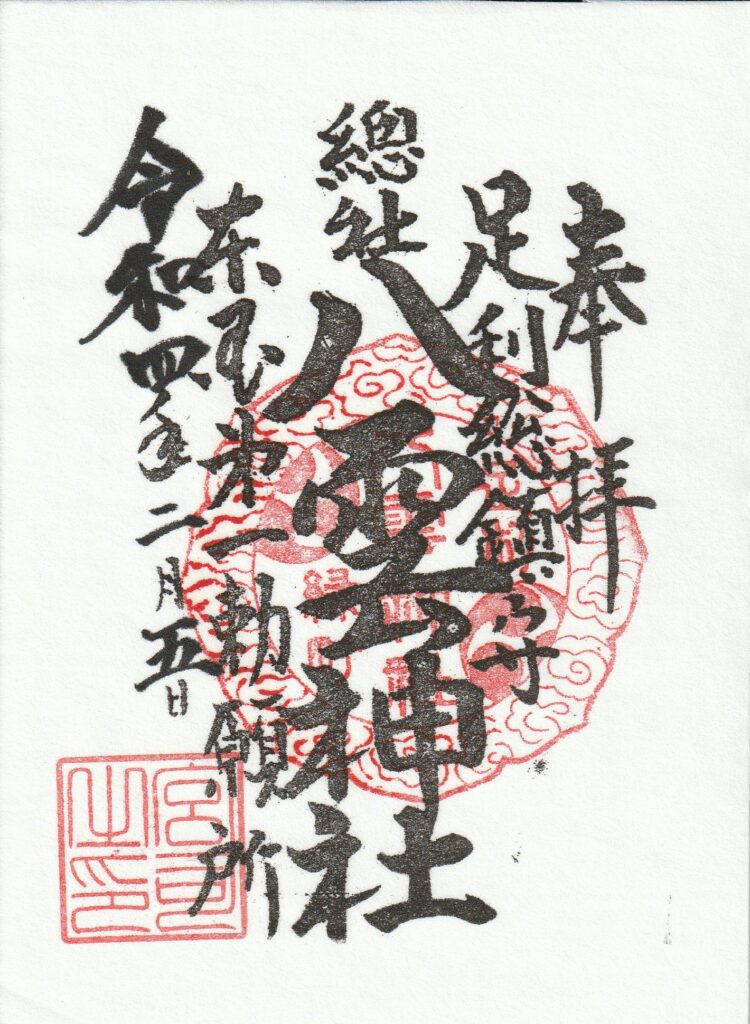 奉拝
足利総鎮守
總社
八雲神社
東国第一勅願所
令和四年二月五日
宮司之印